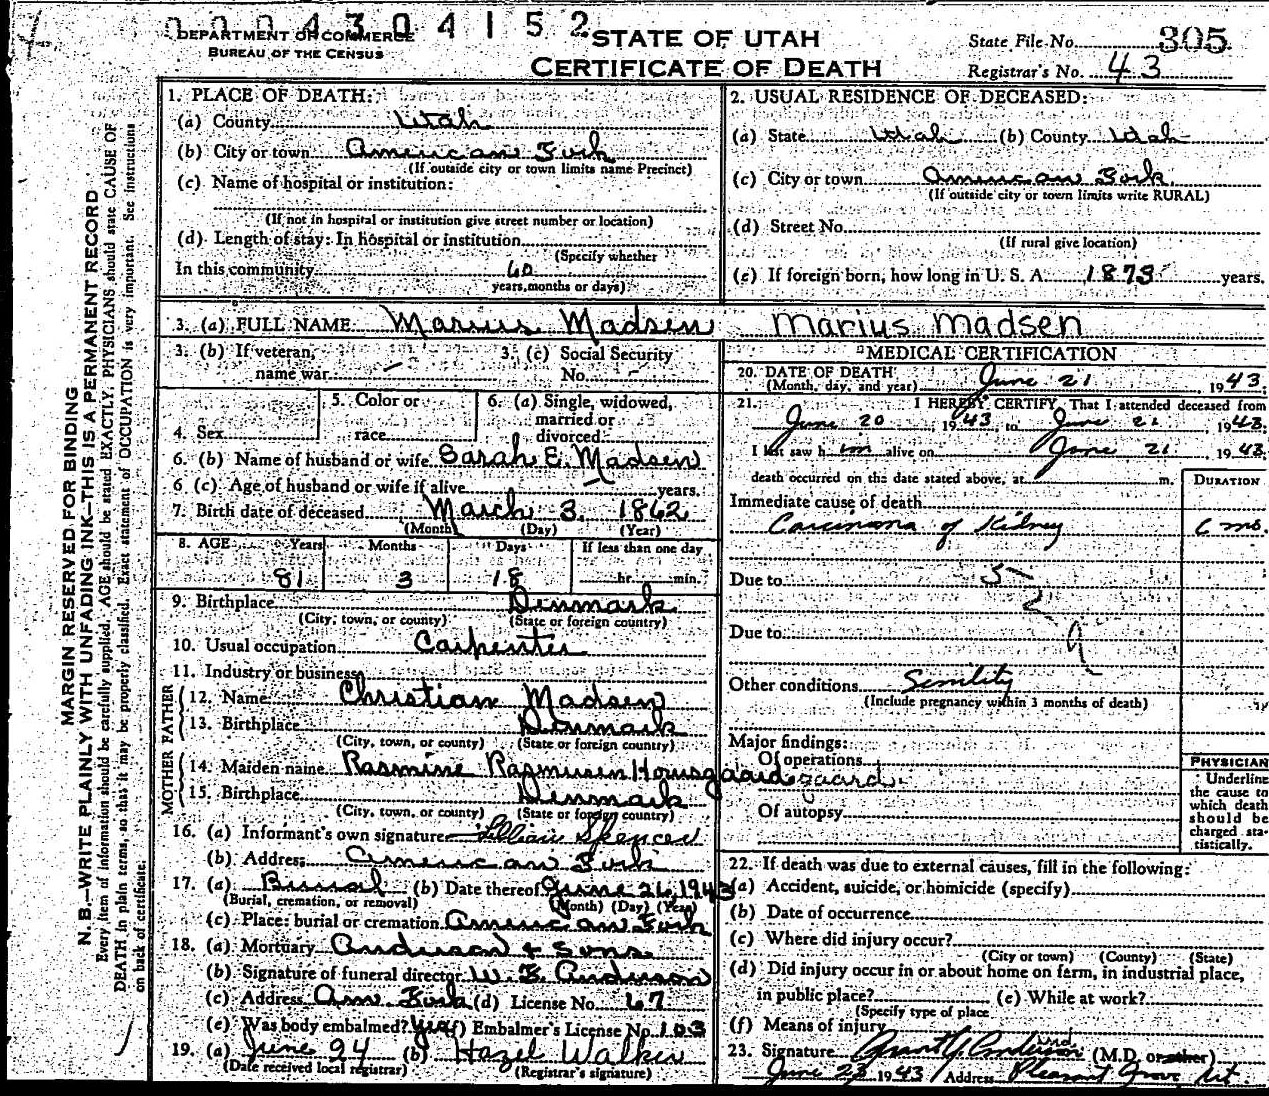 0004304152
DEPARTMENT OF COMMERCE
BUREAU OF THE CENSUS
STATE OF UTAH
CERTIFICATE OF DEATH
State File No. 305
Registrar's No. 43
MARGIN RESERVED FOR BINDING
N. B.—WRITE PLAINLY WITH UNFADING INK—THIS IS A PERMANENT RECORD
Every item of information should be carefully supplied. AGE should be stated EXACTLY. PHYSICIANS should state CAUSE OF
DEATH in plain terms, so that it may be properly classified. Exact statement of OCCUPATION is very important. See instructions
on back of certificate.
1. PLACE OF DEATH:
(a) County Utah
(b) City or town American Fork
(If outside city or town limits name Precinct)
(c) Name of hospital or institution:
(If not in hospital or institution give street number or location)
(d) Length of stay: In hospital or institution
(Specify whether
In this community 60
years, months or days)
2. USUAL RESIDENCE OF DECEASED:
(a) State Utah (b) County Utah
(c) City or town American Fork
(If outside city or town limits write RURAL)
(d) Street No.
(If rural give location)
(e) If foreign born, how long in U. S. A. 1873 years.
3. (a) FULL NAME Marius Madsen Marius Madsen
3. (b) If veteran, name war —
3. (c) Social Security No. —
4. Sex
5. Color or race
6. (a) Single, widowed, married or divorced
6. (b) Name of husband or wife Sarah E. Madsen
6 (c) Age of husband or wife if alive — years.
7. Birth date of deceased March 3, 1862
(Month) (Day) (Year)
8. AGE Years Months Days If less than one day
81 3 18 hr. min.
9. Birthplace Denmark
(City, town, or county) (State or foreign country)
10. Usual occupation Carpenter
11. Industry or business
FATHER
12. Name Christian Madsen
13. Birthplace Denmark
(City, town, or county) (State or foreign country)
MOTHER
14. Maiden name Rasmine Rasmusen Housgaard gaard.
15. Birthplace Denmark
(City, town, or county) (State or foreign country)
16. (a) Informant's own signature Lillian Spencer
(b) Address American Fork
17. (a) Burial (b) Date thereof June 26, 1943
(Burial, cremation, or removal) (Month) (Day) (Year)
(c) Place: burial or cremation American Fork
18. (a) Mortuary Anderson & Sons
(b) Signature of funeral director W. E. Anderson
(c) Address Am. Fork (d) License No. 67
(e) Was body embalmed? Yes (f) Embalmer's License No. 103
19. (a) June 24 (b) Hazel Walker
(Date received local registrar) (Registrar's signature)
MEDICAL CERTIFICATION
20. DATE OF DEATH
(Month, day, and year) June 21, 1943.
21. I HEREBY CERTIFY, That I attended deceased from
June 20, 1943 to June 21, 1943.
I last saw him alive on June 21, 1943,
death occurred on the date stated above, at m.
DURATION
Immediate cause of death
Carcinoma of Kidney 6 mo.
Due to 5
2
Due to 9
Other conditions Senility
(Include pregnancy within 3 months of death)
Major findings:
Of operations
Of autopsy
PHYSICIAN
Underline
the cause to
which death
should be
charged sta-
tistically.
22. If death was due to external causes, fill in the following:
(a) Accident, suicide, or homicide (specify)
(b) Date of occurrence
(c) Where did injury occur?
(City or town) (County) (State)
(d) Did injury occur in or about home on farm, in industrial place,
in public place? (e) While at work?
(Specify type of place
(f) Means of injury
23. Signature Grant Y. Anderson M.D. (M.D. or other)
June 23 1943 Address Pleasant Grove, Ut.